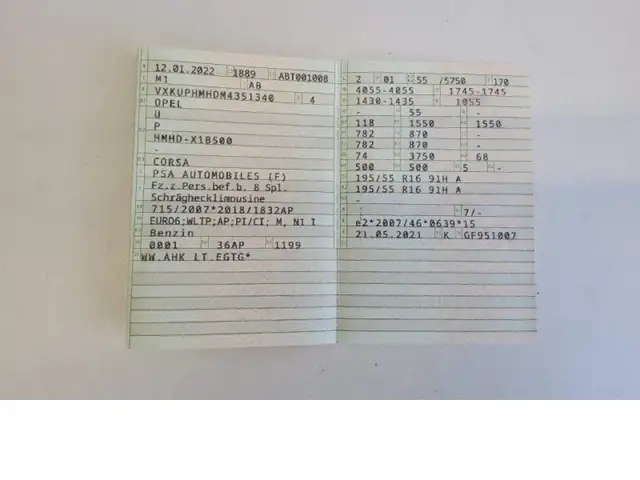 12.01.2022 1889 ABT001008
M1 AB
VXKUPHMHDM4351340 4
OPEL
U
P
HMHD-X1B500
-
CORSA
PSA AUTOMOBILES (F)
Fz.z.Pers.bef.b. 8 Spl.
Schräghecklimousine
715/2007*2018/1832AP
EURO6;WLTP;AP;PI/CI; M, N1 I
Benzin
0001 36AP 1199
WW.AHK LT.EGTG*
2 01 55 /5750 170
4055-4055 1745-1745
1430-1435 1055
- 55 -
118 1550 1550
782 870 -
782 870 -
74 3750 68
500 500 5 -
195/55 R16 91H A
195/55 R16 91H A
-
- 7/-
e2*2007/46*0639*15
21.05.2021 K GF951007